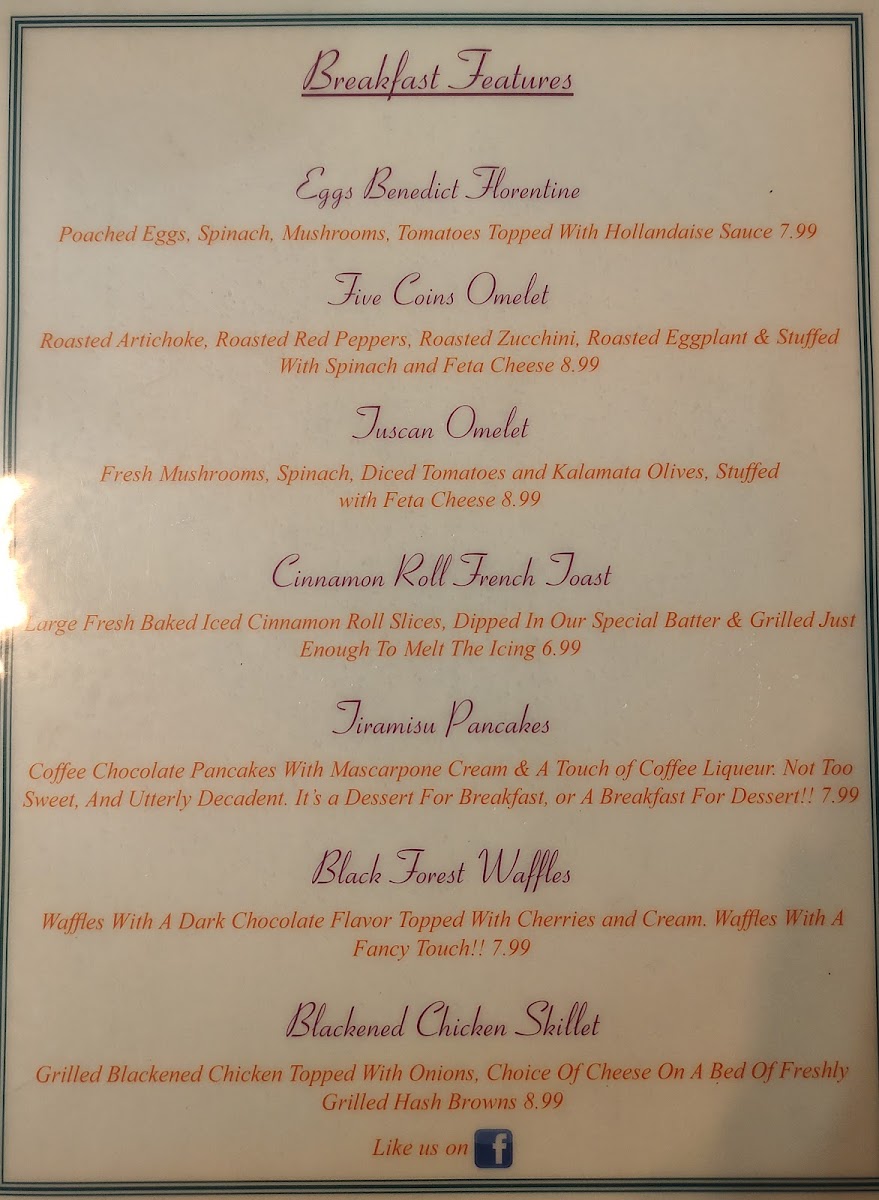 Breakfast Features
Eggs Benedict Florentine
Poached Eggs, Spinach, Mushrooms, Tomatoes Topped With Hollandaise Sauce 7.99
Five Coins Omelet
Roasted Artichoke, Roasted Red Peppers, Roasted Zucchini, Roasted Eggplant & Stuffed
With Spinach and Feta Cheese 8.99
Tuscan Omelet
Fresh Mushrooms, Spinach, Diced Tomatoes and Kalamata Olives, Stuffed
with Feta Cheese 8.99
Cinnamon Roll French Toast
Large Fresh Baked Iced Cinnamon Roll Slices, Dipped In Our Special Batter & Grilled Just
Enough To Melt The Icing 6.99
Tiramisu Pancakes
Coffee Chocolate Pancakes With Mascarpone Cream & A Touch of Coffee Liqueur. Not Too
Sweet, And Utterly Decadent. It's a Dessert For Breakfast, or A Breakfast For Dessert!! 7.99
Black Forest Waffles
Waffles With A Dark Chocolate Flavor Topped With Cherries and Cream. Waffles With A
Fancy Touch!! 7.99
Blackened Chicken Skillet
Grilled Blackened Chicken Topped With Onions, Choice Of Cheese On A Bed Of Freshly
Grilled Hash Browns 8.99
Like us on f